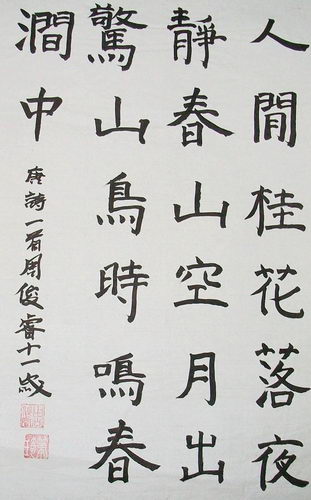 人閒桂花落夜
靜春山空月出
驚山鳥時鳴春
澗中
唐詩一首周俊睿十一歲